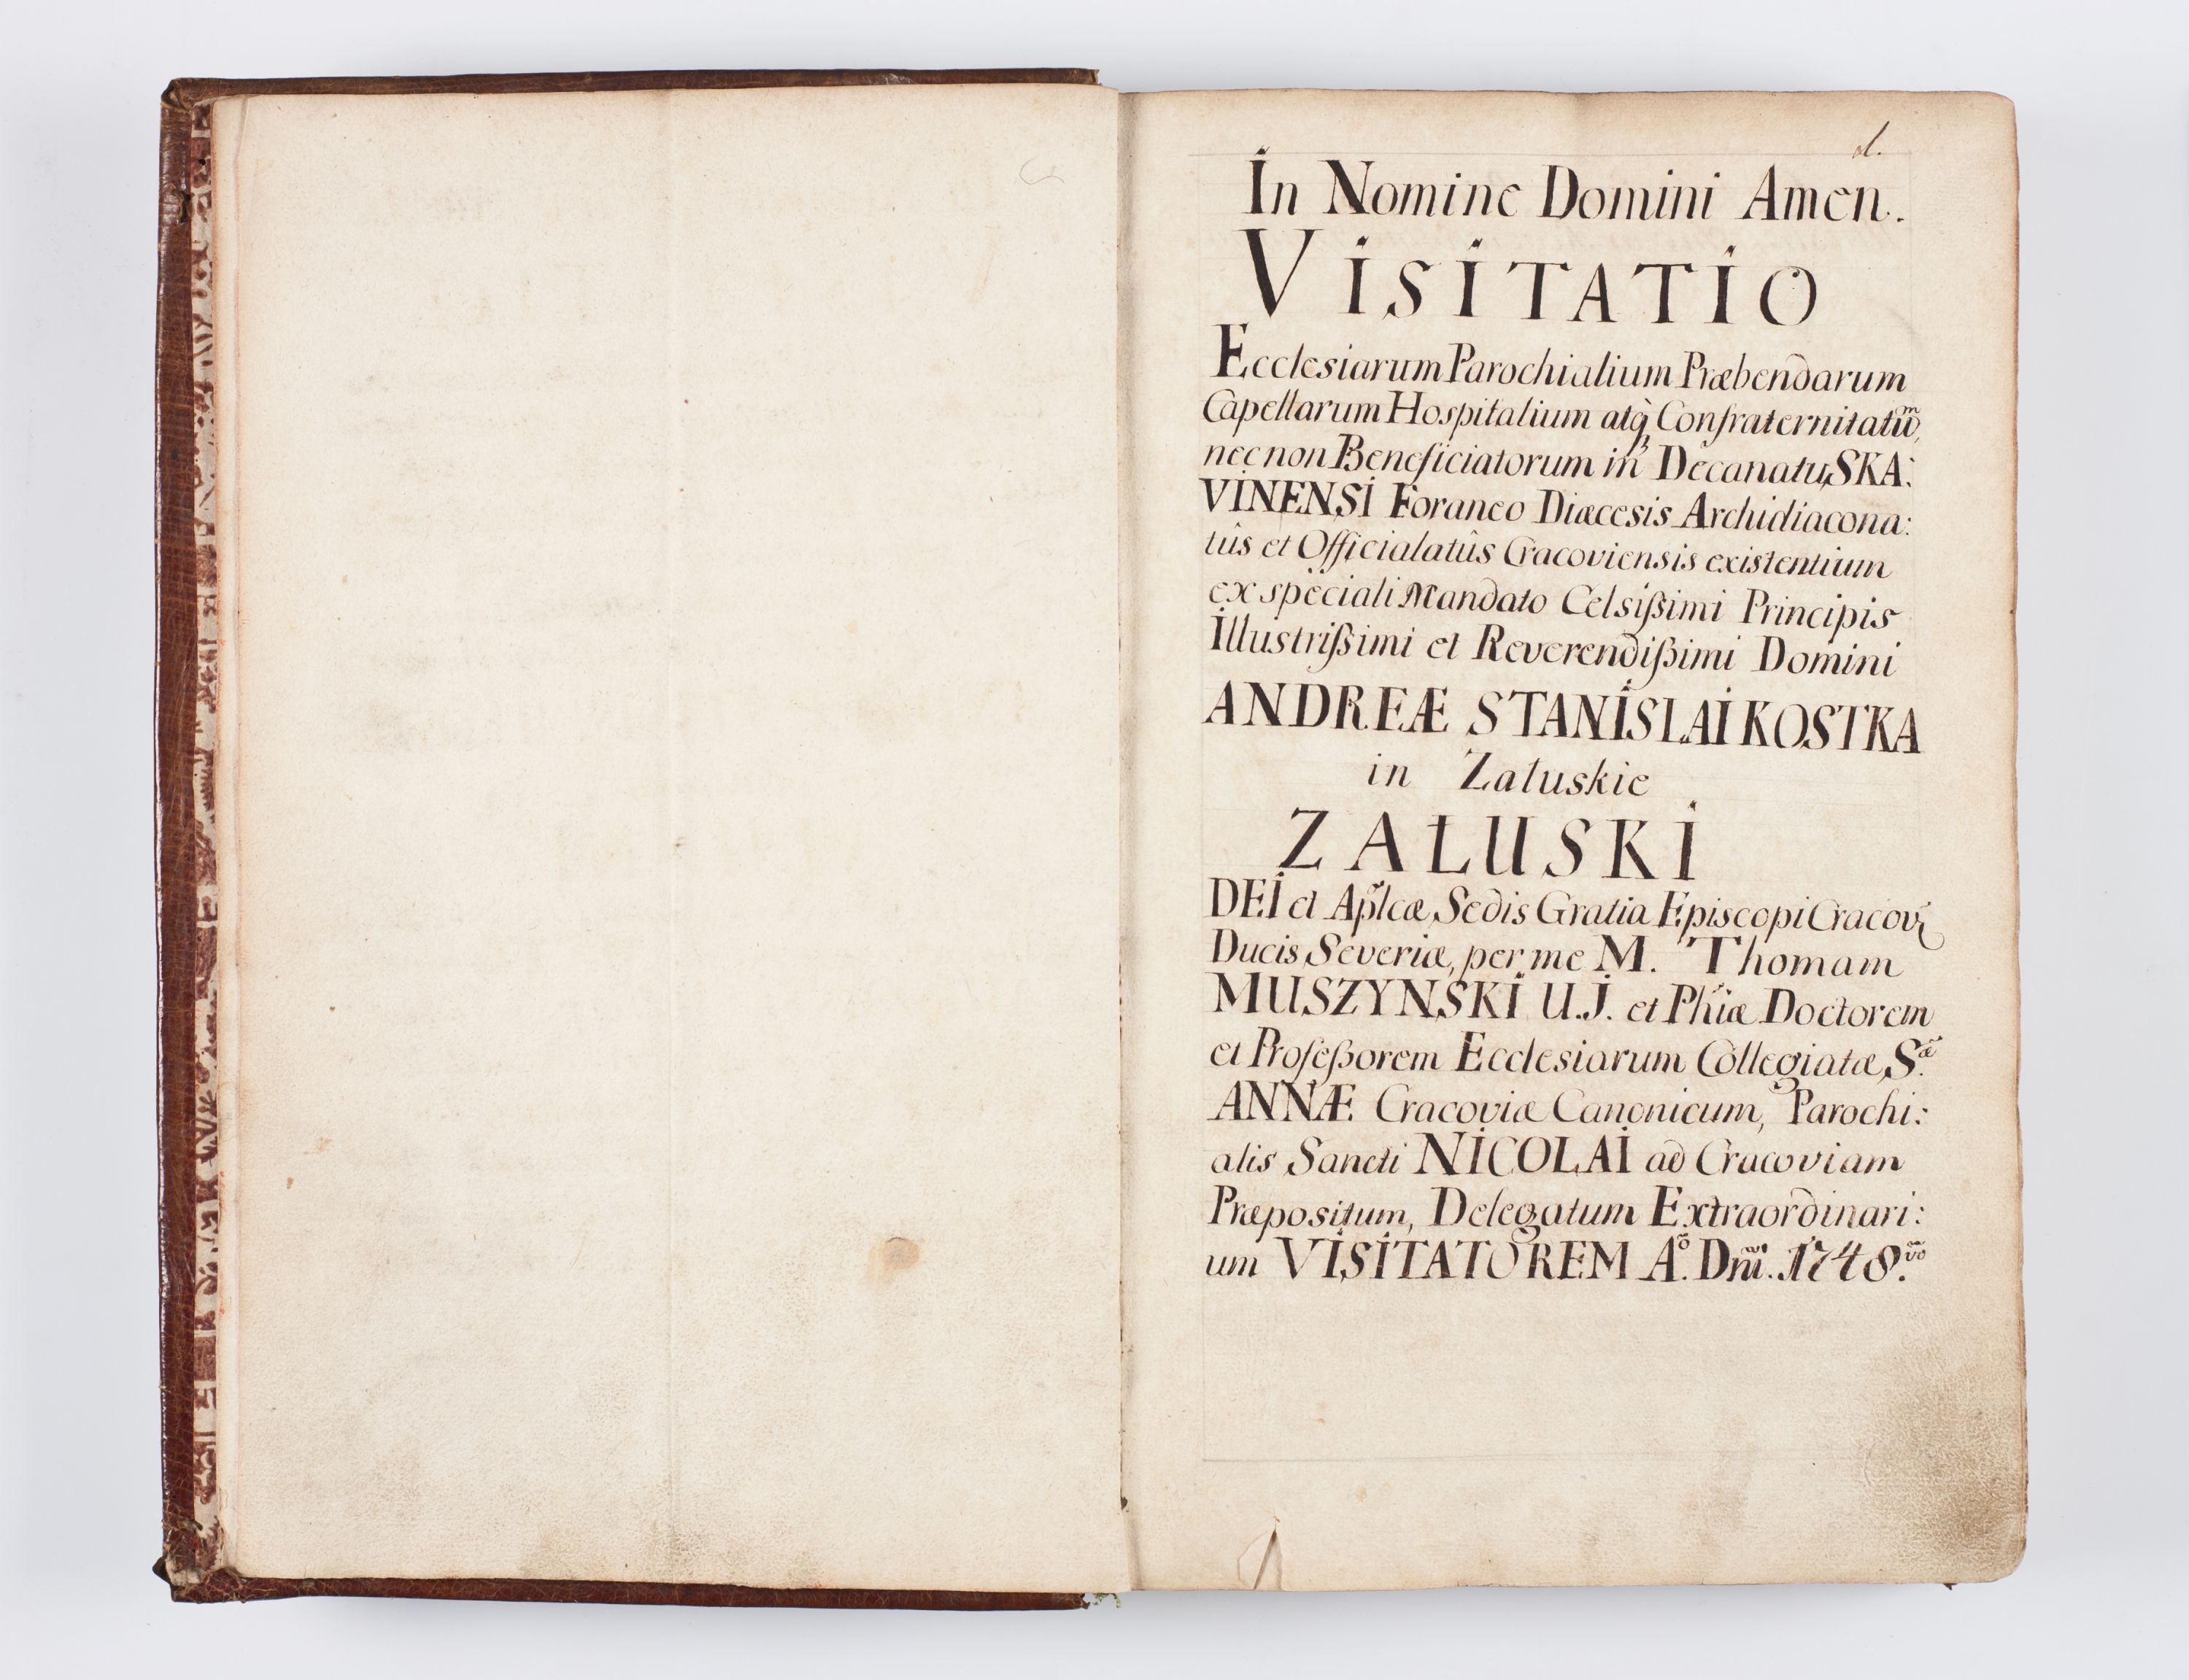 1.
In Nomine Domini Amen.
VISITATIO
Ecclesiarum Parochialium Præbendarum
Capellarum Hospitalium atq̀ Confraternitatũm,
necnon Beneficiatorum in Decanatu SKA:
VINENSI Foraneo Diæcesis Archidiacona:
tûs et Officialatûs Cracoviensis existentium
ex speciali Mandato Celsißimi Principis
Illustrißimi et Reverendißimi Domini
ANDREÆ STANISLAI KOSTKA
in Załuskie
ZAŁUSKI
DEI et Apl̃cæ Sedis Gratia Episcopi Cracov̄
Ducis Severiæ, per me M. Thomam
MUSZYNSKI U.J. et Phiæ Doctorem
et Profeßorem Ecclesiarum Collegiatæ S.æ
ANNÆ Cracoviæ Canonicum, Parochi:
alis Sancti NICOLAI ad Cracoviam
Præpositum, Delegatum Extraordinari:
um VISITATOREM A.õ Dnĩ. 1748.vo